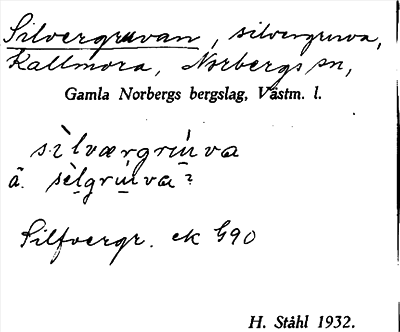 Silvergruvan, silvergruva,
Kallmora, Norbergs sn,
Gamla Norbergs bergslag, Västm. l.
sìlværgrùva
ä. sèlgrùva?
Silfvergr. ek G90
H. Ståhl 1932.